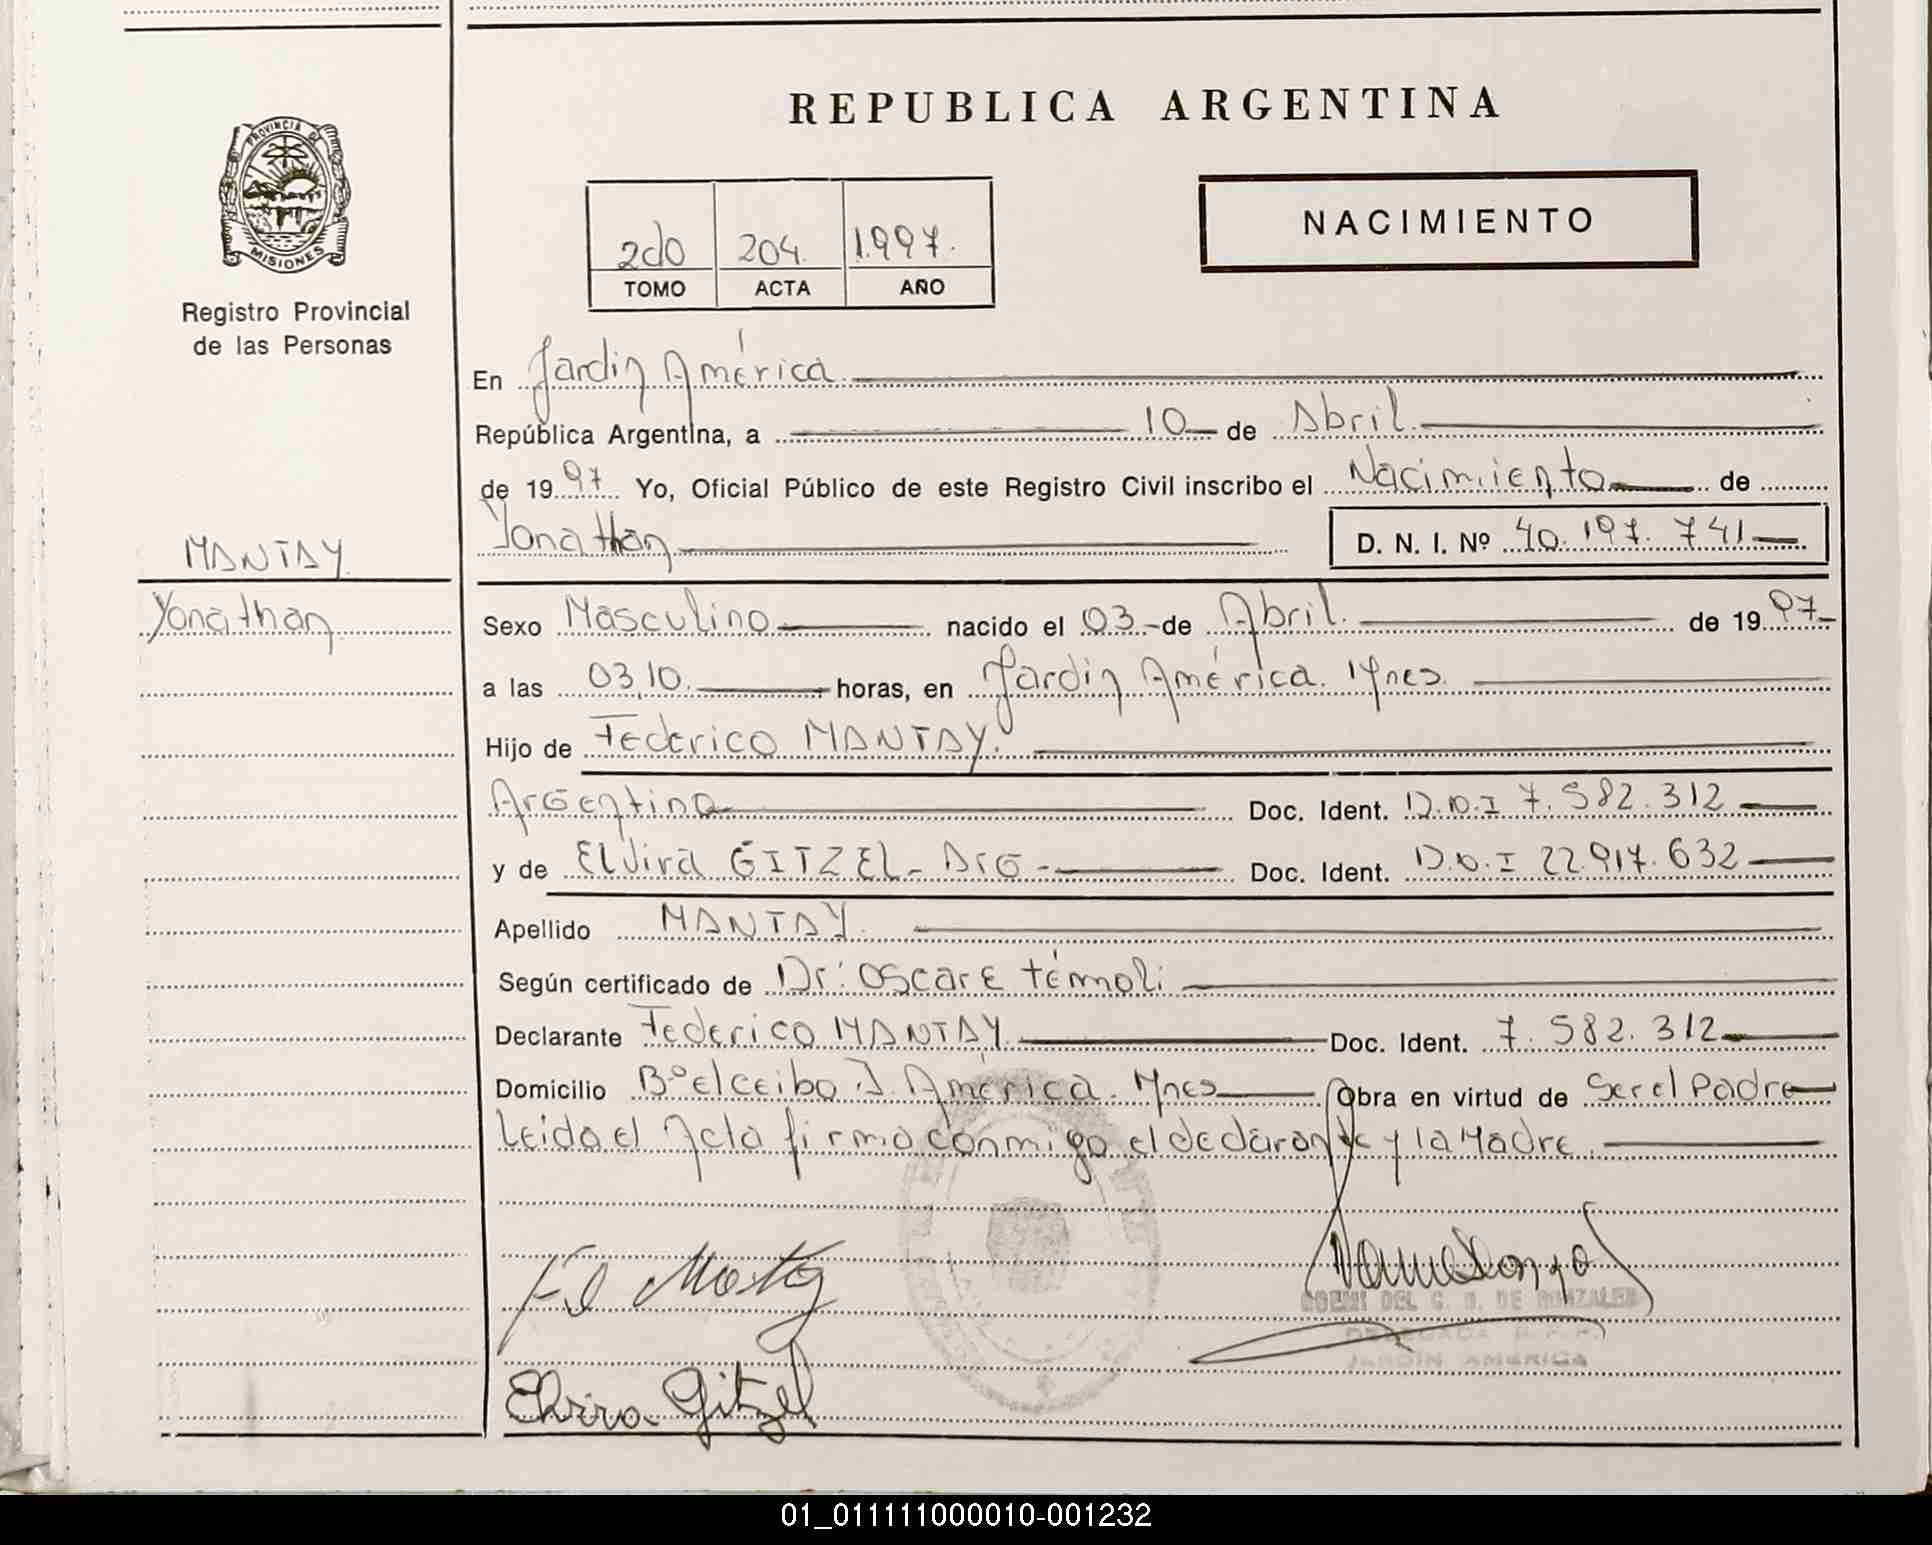 REPUBLICA ARGENTINA
PROVINCIA DE
MISIONES
Registro Provincial
de las Personas
2do 204 1997.
TOMO ACTA AÑO
NACIMIENTO
En Jardin América
República Argentina, a 10 de Abril
de 1997 Yo, Oficial Público de este Registro Civil inscribo el Nacimiento de
Yonathan D. N. I. Nº 40.197.741
MANTAY
Yonathan
Sexo Masculino nacido el 03 de Abril. de 1997
a las 03,10. horas, en Jardin América. Mnes.
Hijo de Federico MANTAY.
Argentino Doc. Ident. D.N.I 7.582.312
y de Elvira GITZEL - Arg - Doc. Ident. D.N.I 22.917.632
Apellido MANTAY.
Según certificado de Dr: Oscar E Témoli
Declarante Federico MANTAY. Doc. Ident. 7.582.312
Domicilio Bº el ceibo J. América. Mnes Obra en virtud de Ser el Padre
Leida el Acta firma conmigo el declarante y la Madre.
Elvira Gitzel
DEL C. D. DE GONZALEZ
DELEGADA R.P.P.
JARDIN AMERICA
01_011111000010-001232